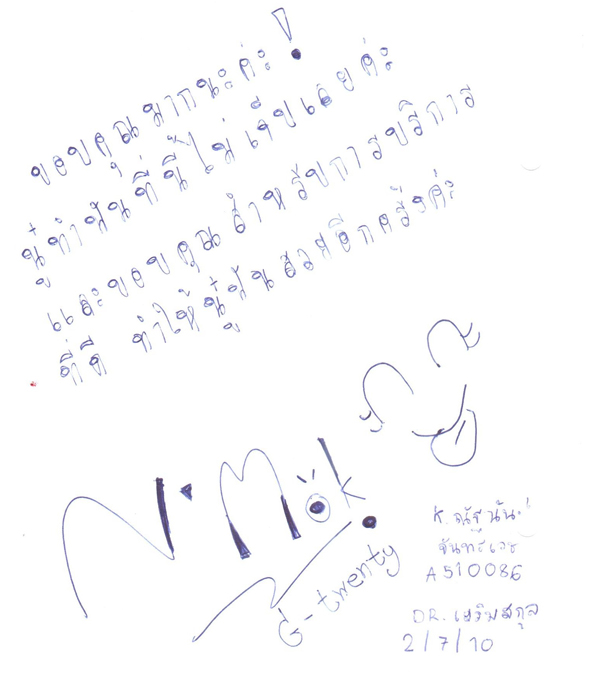 ขอบคุณมากนะค่ะ!
นู๋ทำฟันที่นี่ไม่เจ็บเลยค่ะ
และขอบคุณสำหรับการบริการ
ที่ดี ทำให้นู๋ฟันสวยอีกครั้งค่ะ
N. Mok.
G-twenty
K. ณัฐนันท์
A510086
DR. เสริมสกุล
2/7/10